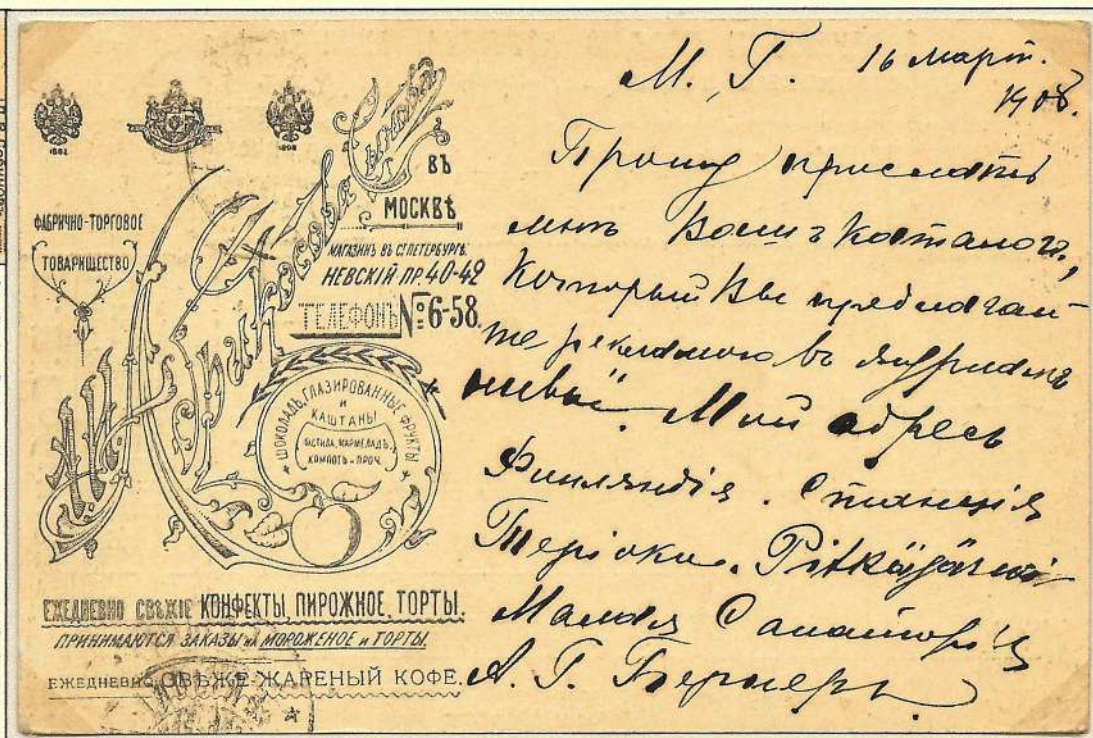 1882
1896
ФАБРИЧНО-ТОРГОВОЕ
ТОВАРИЩЕСТВО
А.И. Абрикосова Сыновей
ВЪ
МОСКВѢ
МАГАЗИНЪ ВЪ С.ПЕТЕРБУРГѢ.
НЕВСКІЙ ПР. 40-42
ТЕЛЕФОНЪ №6-58.
ШОКОЛАДЪ, ГЛАЗИРОВАННЫЕ ФРУКТЫ
И
КАШТАНЫ
ПАСТИЛА, МАРМЕЛАДЪ,
КОМПОТЪ и ПРОЧ.
ЕЖЕДНЕВНО СВѢЖІЕ КОНФЕКТЫ, ПИРОЖНОЕ, ТОРТЫ.
ПРИНИМАЮТСЯ ЗАКАЗЫ НА МОРОЖЕНОЕ и ТОРТЫ.
ЕЖЕДНЕВНО СВѢЖЕ-ЖАРЕНЫЙ КОФЕ.
М. Г. 16 март.
1908.
Прошу прислать
мнѣ Вашъ каталогъ,
который Вы предлагае-
те рекламою въ
Мой адресъ
Финляндія. Станція
Теріоки. Pitkäjärvi
Малая Санаторія
А. Г. Бернеръ